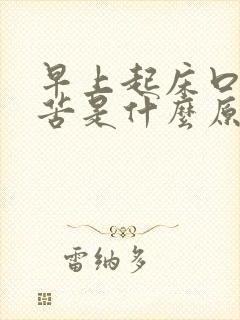 早上起床口
苦是什麼原
雷纳多